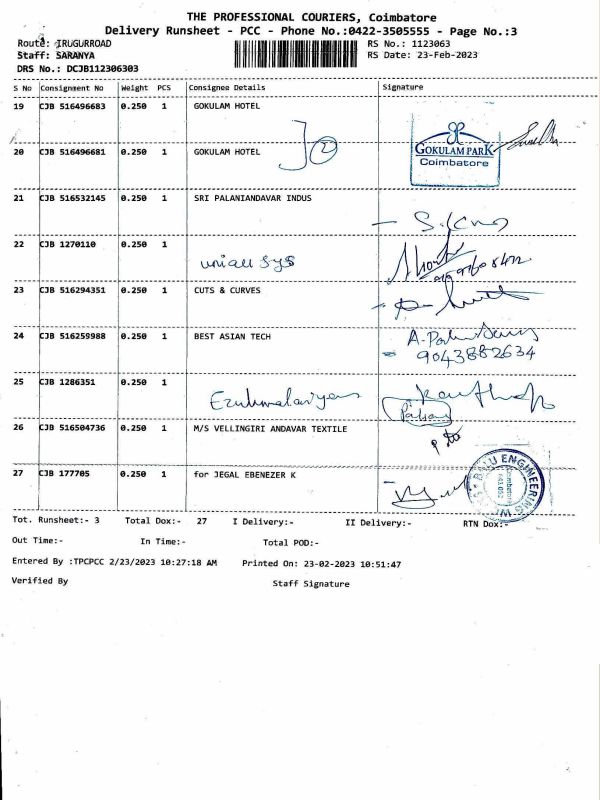 THE PROFESSIONAL COURIERS, Coimbatore
Delivery Runsheet - PCC - Phone No.:0422-3505555 - Page No.:3
Route: IRUGURROAD
RS No.: 1123063
Staff: SARANYA
RS Date: 23-Feb-2023
DRS No.: DCJB112306303
S No Consignment No Weight PCS Consignee Details Signature
19 CJB 516496683 0.250 1 GOKULAM HOTEL
2
GOKULAM PARK
Coimbatore
20 CJB 516496681 0.250 1 GOKULAM HOTEL
21 CJB 516532145 0.250 1 SRI PALANIANDAVAR INDUS
22 CJB 1270110 0.250 1
23 CJB 516294351 0.250 1 CUTS & CURVES
24 CJB 516259988 0.250 1 BEST ASIAN TECH
9043882634
25 CJB 1286351 0.250 1
26 CJB 516504736 0.250 1 M/S VELLINGIRI ANDAVAR TEXTILE
27 CJB 177705 0.250 1 for JEGAL EBENEZER K
ENGINEERING
Coimbatore
Tot. Runsheet:- 3 Total Dox:- 27 I Delivery:- II Delivery:- RTN Dox:-
Out Time:- In Time:- Total POD:-
Entered By :TPCPCC 2/23/2023 10:27:18 AM Printed On: 23-02-2023 10:51:47
Verified By Staff Signature